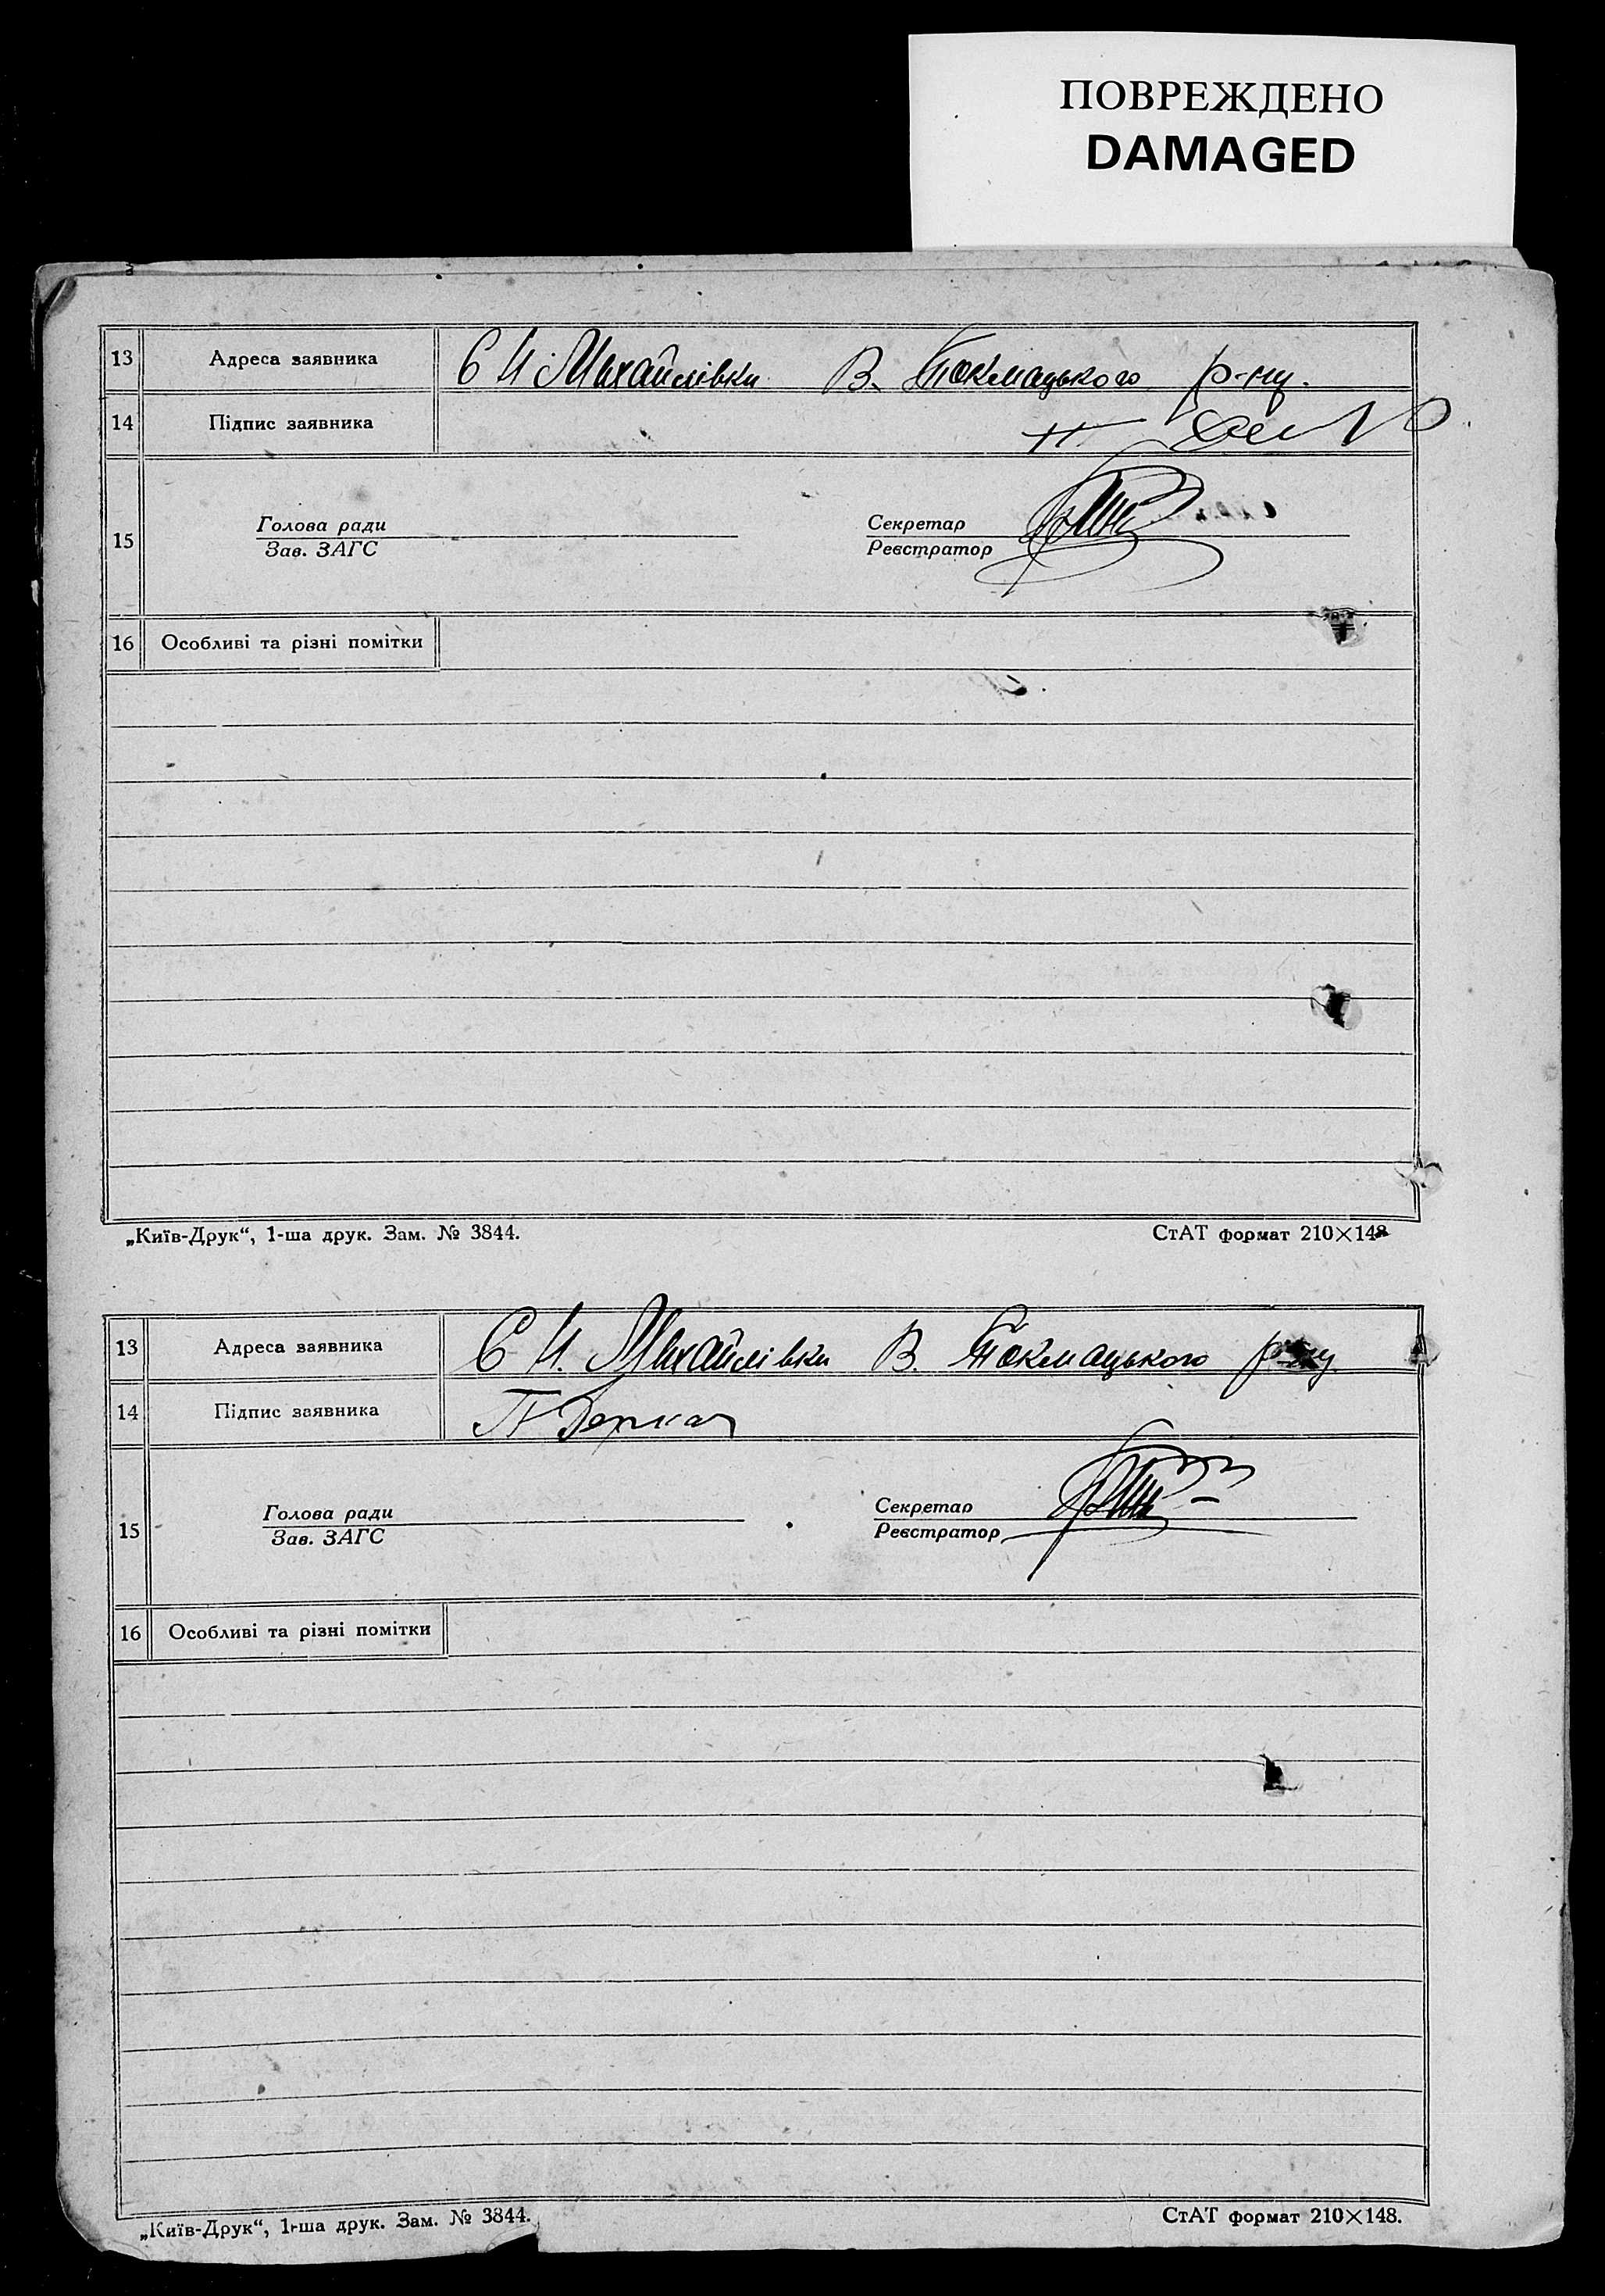 ПОВРЕЖДЕНО
DAMAGED
13 Адреса заявника С Н Михайлівки В. Токмацького р-ну.
14 Підпис заявника
15 Голова ради Секретар
Зав. ЗАГС Реєстратор
16 Особливі та різні помітки
„Київ-Друк“, 1-ша друк. Зам. № 3844. СтАТ формат 210×148
13 Адреса заявника С Н. Михайлівки В. Токмацького р-ну
14 Підпис заявника П Деркач
15 Голова ради Секретар
Зав. ЗАГС Реєстратор
16 Особливі та різні помітки
„Київ-Друк“, 1-ша друк. Зам. № 3844. СтАТ формат 210×148.